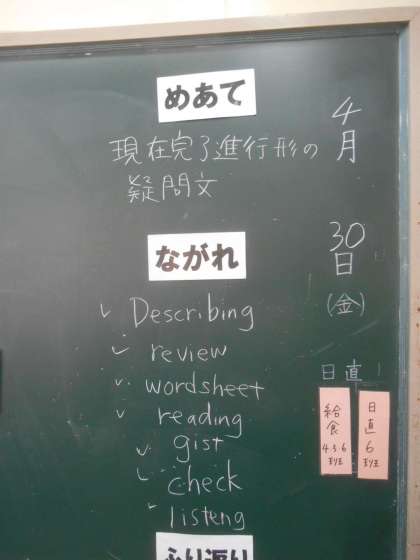 めあて
現在完了進行形の
疑問文
ながれ
Describing
review
wordsheet
reading
gist
check
listeng
ふり返り
4月
30日
(金)
日直
給食
4.5.6
班
日直
6
班